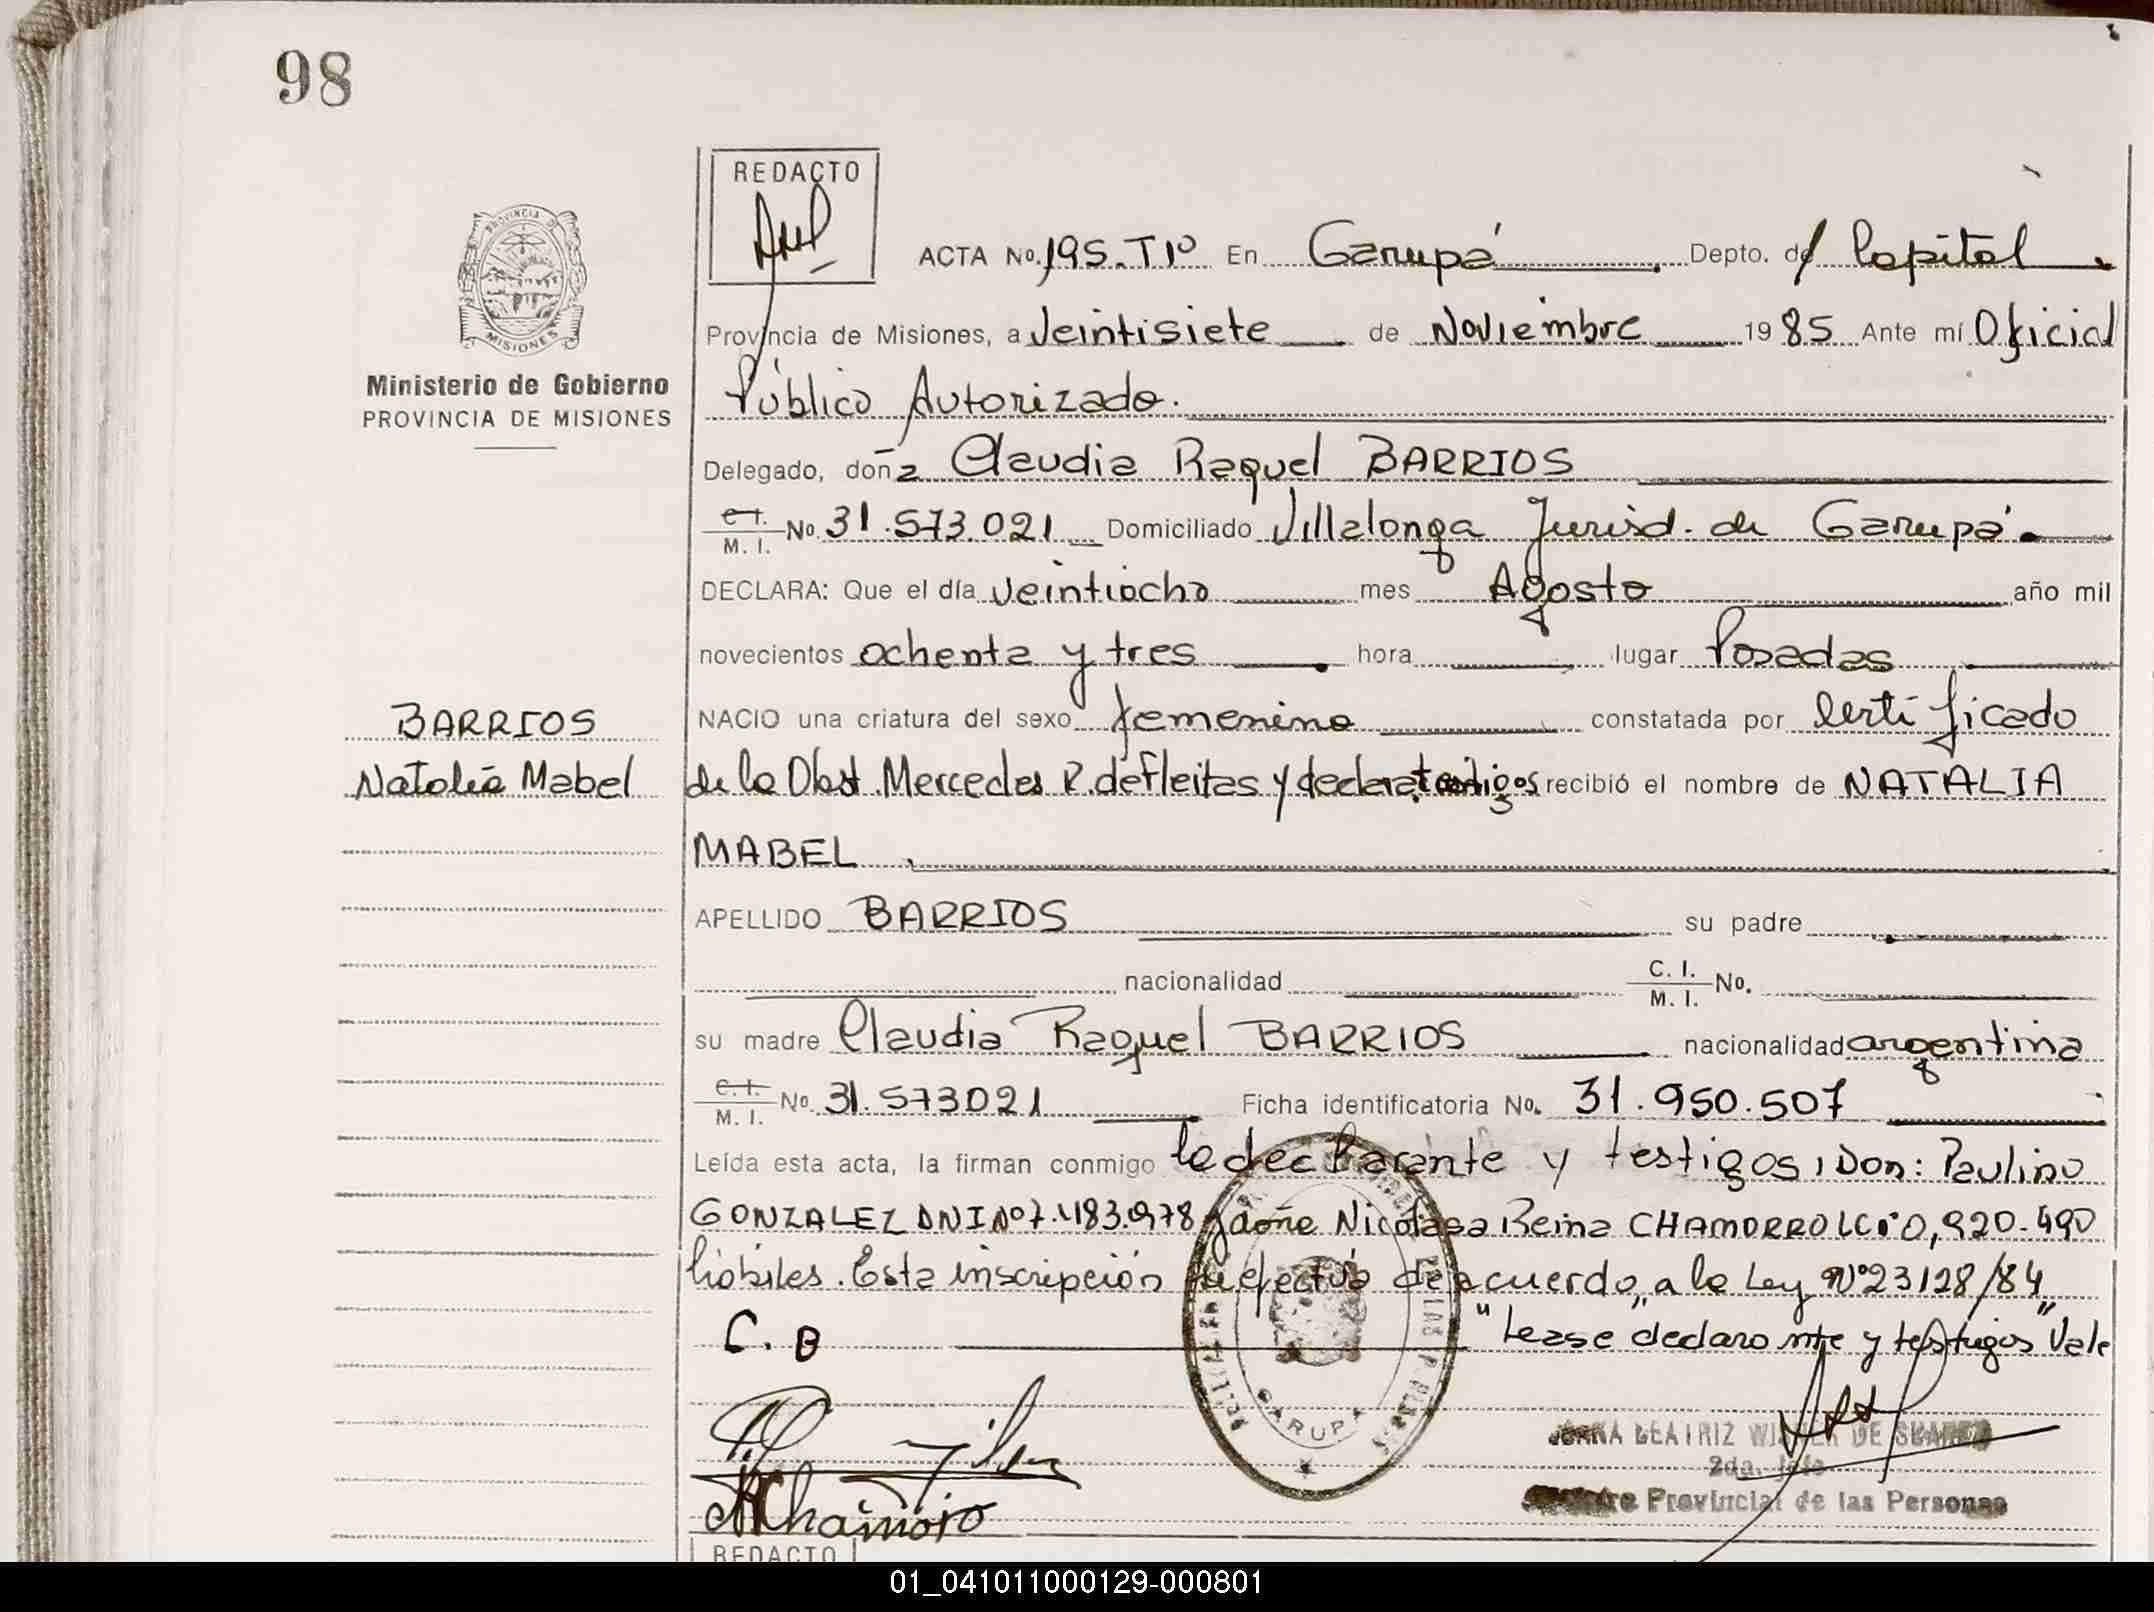 98
REDACTO
ACTA No. 195. T1º En Garupá Depto. de Capital
Provincia de Misiones, a Veintisiete de Noviembre 1985 Ante mí Oficial
Público Autorizado.
Delegado, doña Claudia Raquel BARRIOS
C.I. / M.I. No. 31.573.021 Domiciliado Villalonga Jurisd. de Garupá.
DECLARA: Que el día veintiocho mes Agosto año mil
novecientos ochenta y tres hora lugar Posadas
NACIO una criatura del sexo femenino constatada por Certificado
de la Obst. Mercedes R. de Fleitas y testigos recibió el nombre de NATALIA
MABEL
APELLIDO BARRIOS su padre
nacionalidad C. I. / M. I. No.
su madre Claudia Raquel BARRIOS nacionalidad argentina
C.I. / M. I. No. 31.573021 Ficha identificatoria No. 31.950.507
Leída esta acta, la firman conmigo la declarante y testigos, Don: Paulino
GONZALEZ DNI Nº 7.483.978 y doña Nicolasa Reina CHAMORRO LC. 0,920.490
hábiles. Esta inscripción se efectúa de acuerdo a la Ley Nº 23128/84
C. B "Lease declarante y testigos" Vale
Ministerio de Gobierno
PROVINCIA DE MISIONES
PROVINCIA DE
MISIONES
BARRIOS
Natalia Mabel
GARUPA
BEATRIZ DE SUAREZ
2da. Jefe
Provincial de las Personas
Chamorro
REDACTO
01_041011000129-000801